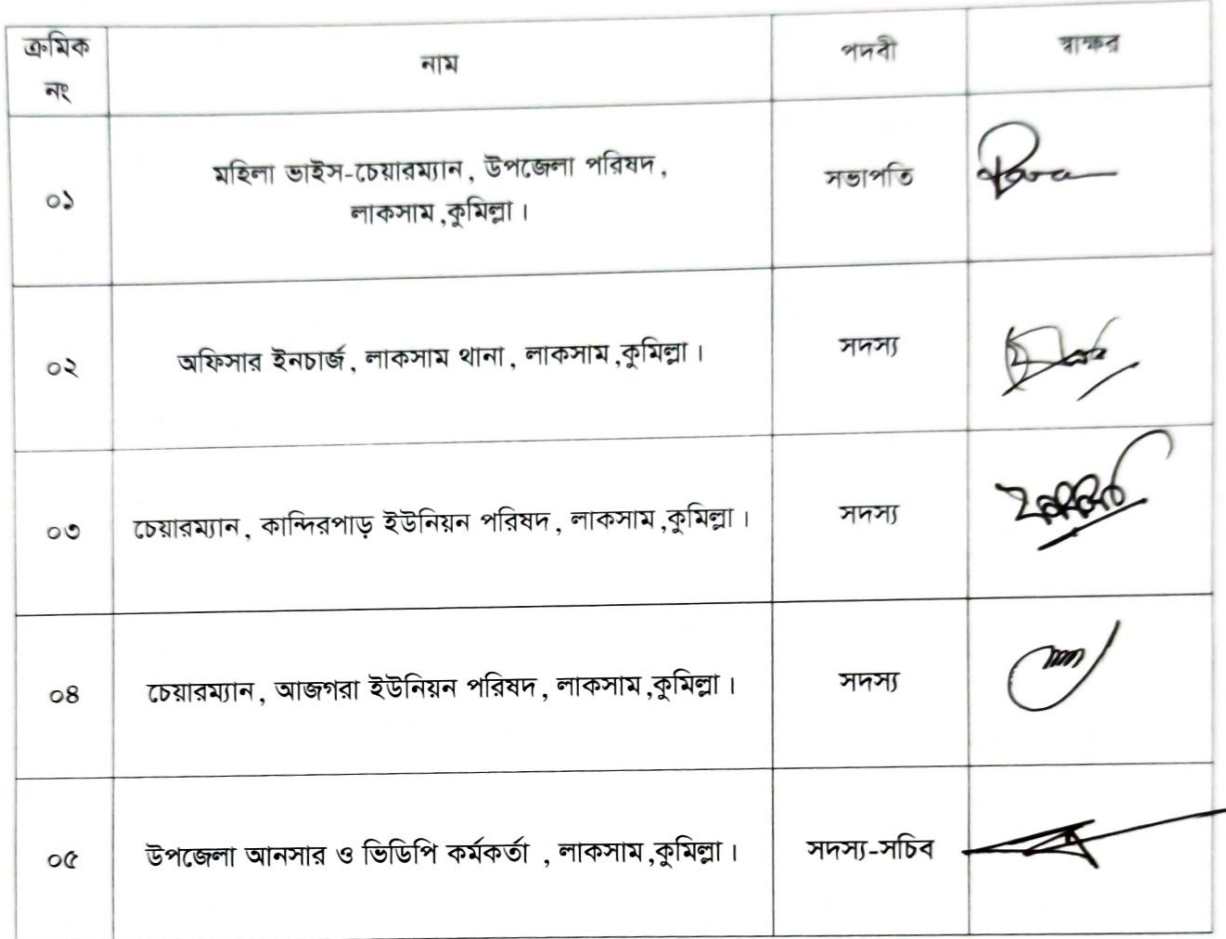 ক্রমিক
নং
নাম
পদবী
স্বাক্ষর
০১
মহিলা ভাইস-চেয়ারম্যান, উপজেলা পরিষদ,
লাকসাম,কুমিল্লা।
সভাপতি
০২
অফিসার ইনচার্জ, লাকসাম থানা, লাকসাম,কুমিল্লা।
সদস্য
০৩
চেয়ারম্যান, কান্দিরপাড় ইউনিয়ন পরিষদ, লাকসাম,কুমিল্লা।
সদস্য
০৪
চেয়ারম্যান, আজগরা ইউনিয়ন পরিষদ, লাকসাম,কুমিল্লা।
সদস্য
০৫
উপজেলা আনসার ও ভিডিপি কর্মকর্তা , লাকসাম,কুমিল্লা।
সদস্য-সচিব